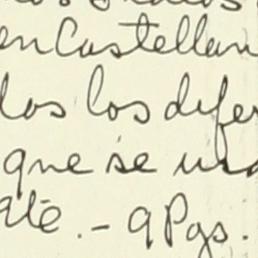 en Castellan
dos los difer
que se us
até. - 9 Pgs.